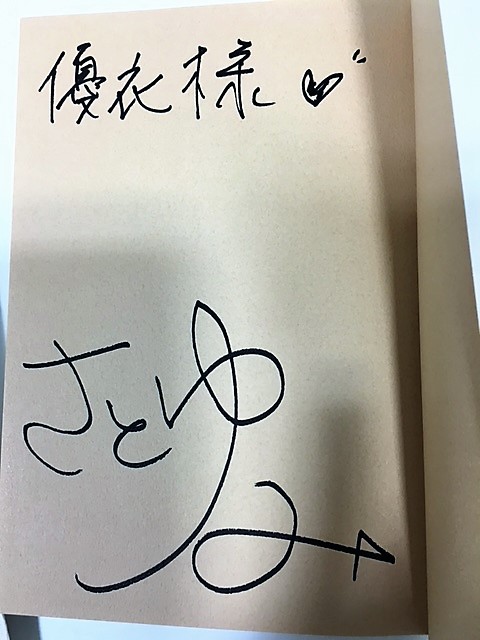 優衣様♡
さとゆみ